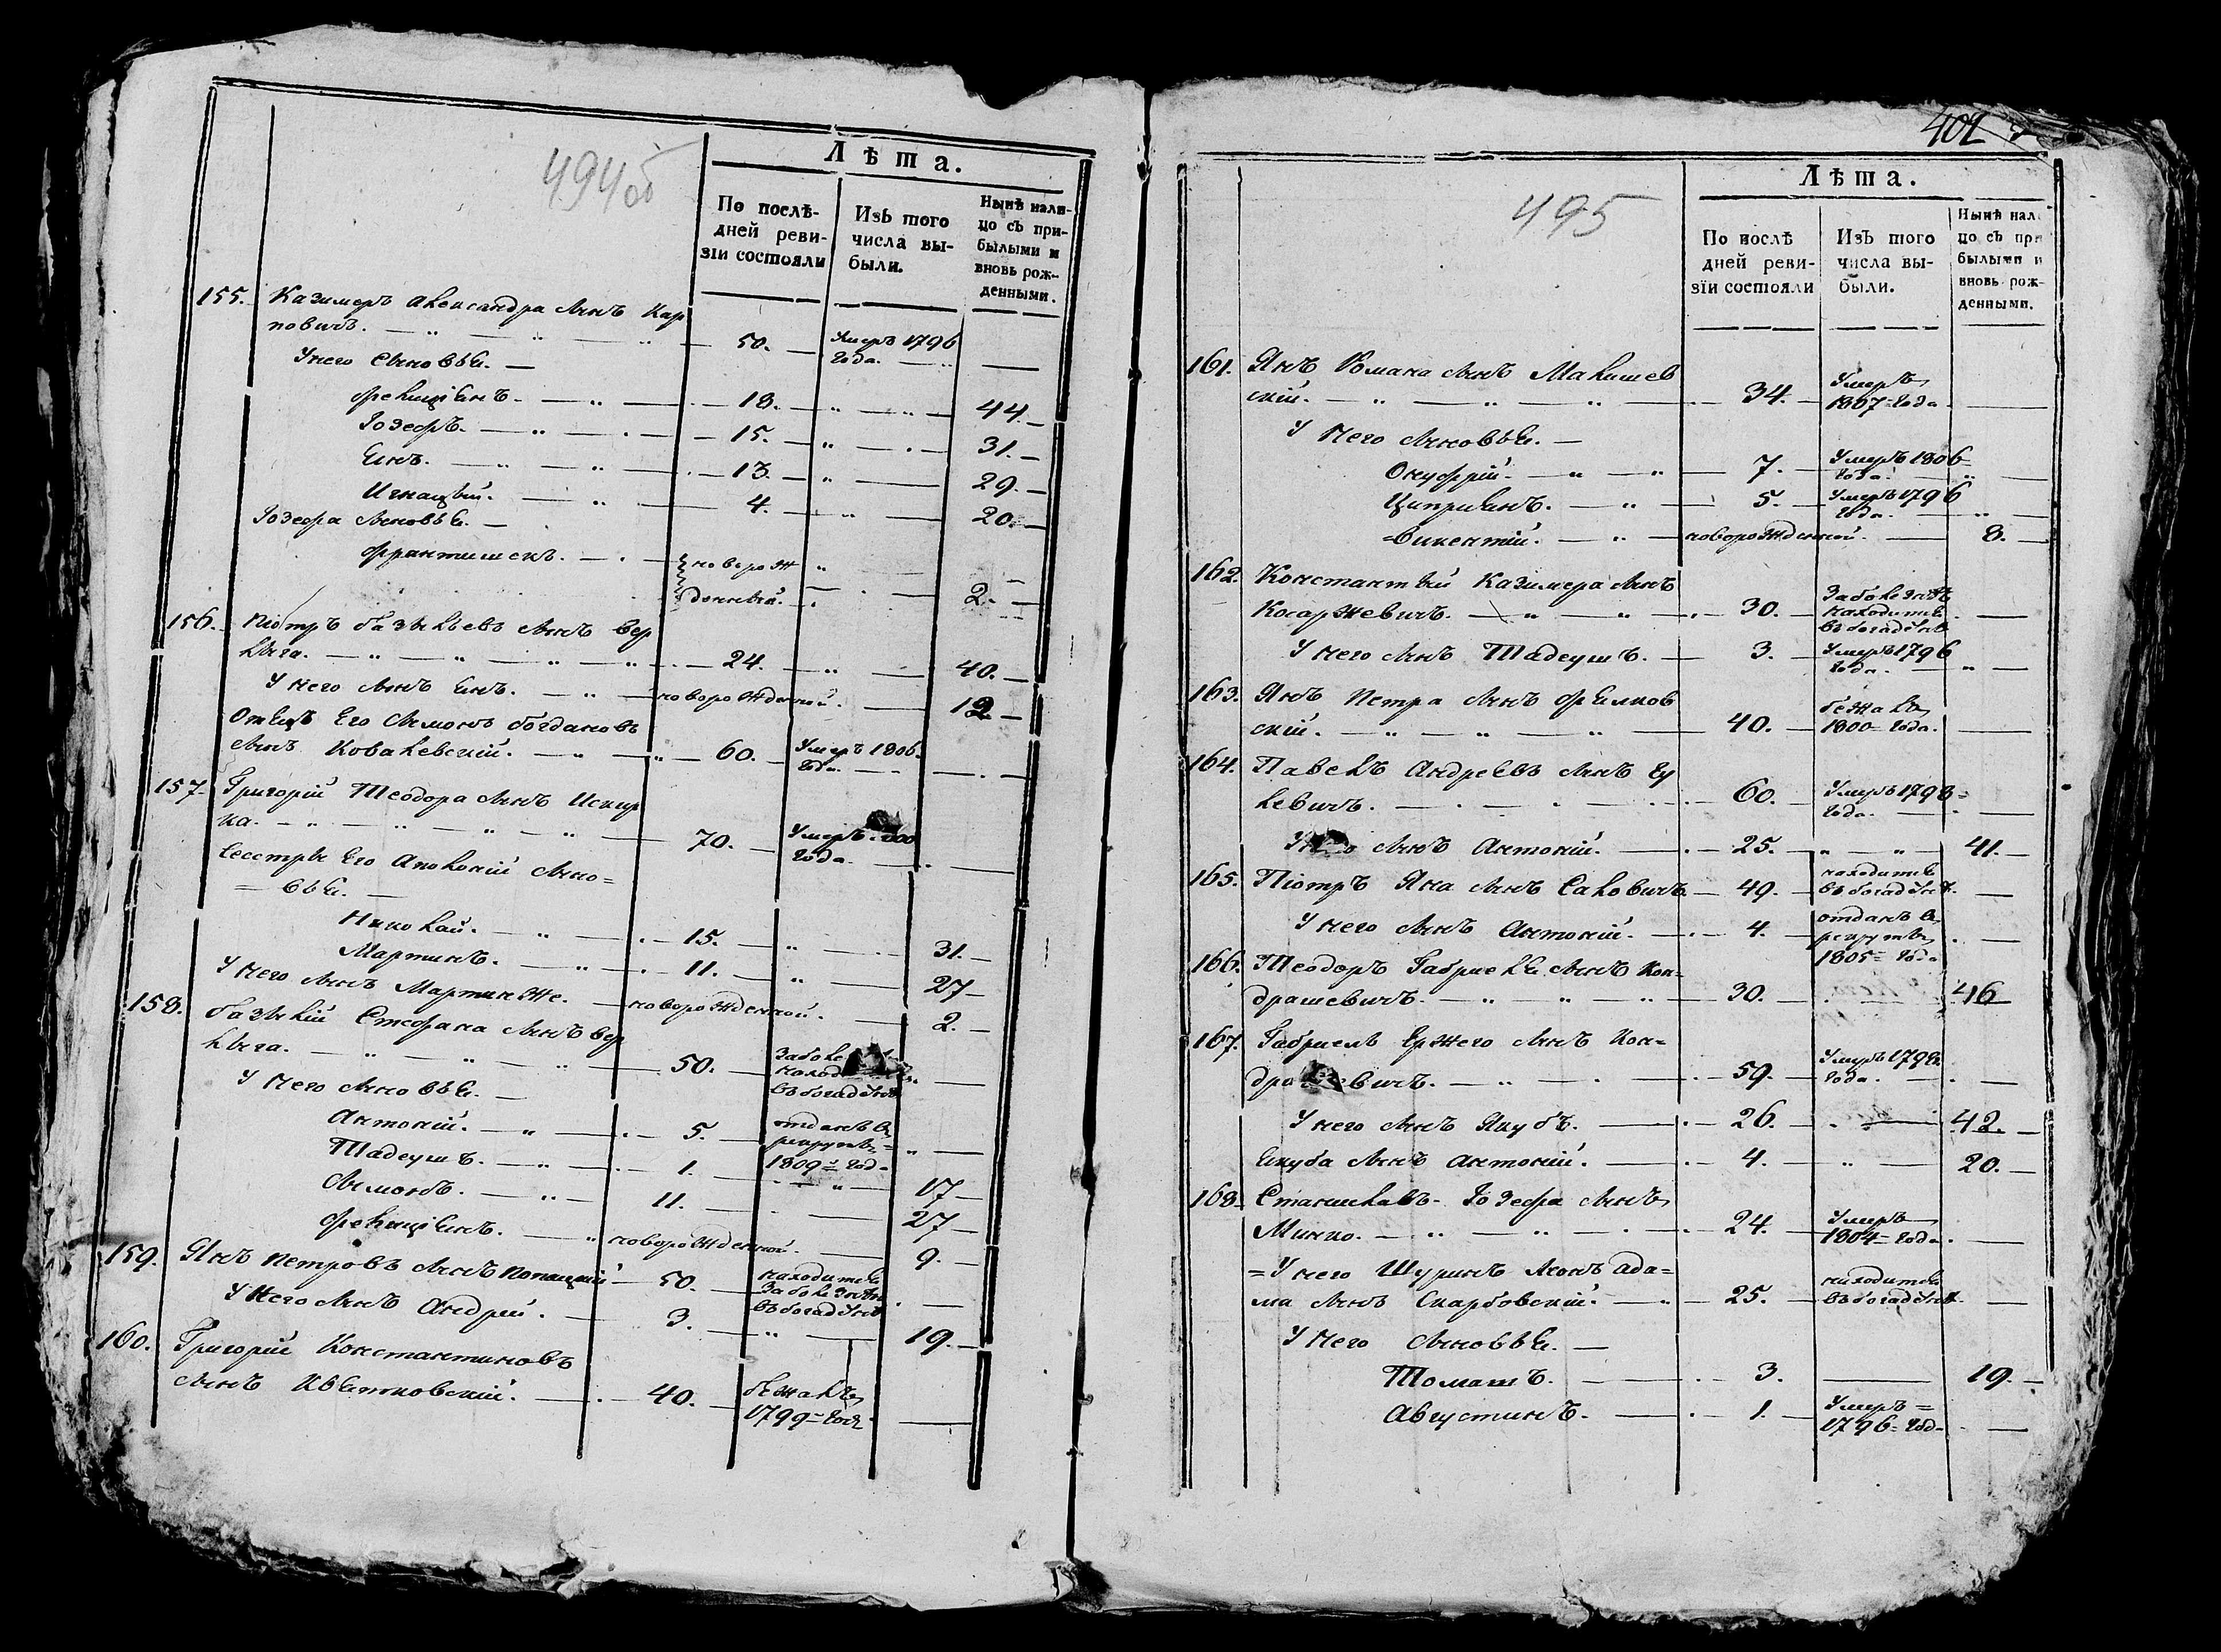 494об
Лѣта.
По послѣ-
дней реви-
зіи состояли
Изъ того
числа вы-
были.
Нынѣ нали-
цо съ при-
былыми и
вновь рож-
денными.
155. Казимеръ Александра сынъ Кар
повичъ. 50. Умеръ 1796 года.
У него сыновья.
Фелиціянъ. 18. 44.
Іозефъ. 15. 31.
Янъ. 13. 29.
Игнацій. 4. 20.
Іозефа сыновья.
Франтишекъ. новорож
денный. 2.
156. Піотръ базылевъ сынъ вер
лыга. 24. 40.
У него сынъ янъ. новорожденной. 12
Отецъ его сымонъ богдановъ
сынъ Ковалевскій. 60. Умеръ 1806. года.
157. Григорій Теодора сынъ
ка. 70. Умеръ года.
Сестры его Аполоніи сыно=
=вья.
Николай. 15. 31.
Мартинъ. 11. 27
У него сынъ Мартинъ же. новорожденной. 2.
158. базылій Стефана сынъ вер
лыга. 50. въ богадѣлнѣ
У него сыновья.
Антоній. 5. отданъ въ рекруты 1809= года
Тадеушъ. 1. 17
Сымонъ. 11. 27
Фелиціянъ. новорожденной. 9.
159. Янъ Петровъ сынъ 50. находится заболезнію въ богадѣлнѣ
У него сынъ Андрей. 3. 19.
160. Григорій Константиновъ
сынъ Квятковскій. 40. бежалъ 1799= года
402
495
Лѣта.
По послѣ
дней реви-
зіи состояли
Изъ того
числа вы-
были.
Нынѣ нал
цо съ при
былыми и
вновь рож-
денными.
161. Янъ Романа сынъ Малишев
скій. 34. Умеръ 1807= года
У него сыновья.
Онуфрій. 7. Умеръ 1806 года.
Циприянъ. 5. Умеръ 1796 года.
=викентій. новорожденной. 8.
162. Константый Казимера сынъ
Косаржевичъ. 30. Заболезнію находится въ богадѣлнѣ
У него сынъ Тадеушъ. 3. Умеръ 1796 года.
163. Янъ Петра сынъ Фялков
скій. 40. бежалъ 1800= года.
164. Павелъ Андреевъ сынъ
левичъ. 60. Умеръ 1798= года.
У него сынъ Антоній. 25. 41.
165. Піотръ Яна сынъ Саковичъ 49. находится въ богадѣлнѣ.
У него сынъ Антоній. 4. отданъ въ рекруты 1805= года
166. Теодоръ Габриеля сынъ Кон=
драшевичъ. 30. 46
167. Габриель Ержего сынъ Кон=
драшевичъ. 59. Умеръ года.
У него сынъ Якубъ. 26. 42.
Якуба сынъ Антоній. 4. 20.
168. Станиславъ Іозефа сынъ
Минко. 24. Умеръ 1804= года.
=У него Шуринъ Леонъ Ада=
ма сынъ Скарбовскій. 25. находится въ богадѣлнѣ
У него сыновья.
Томашъ. 3. 19.
Августинъ. 1. Умеръ= 1796= года